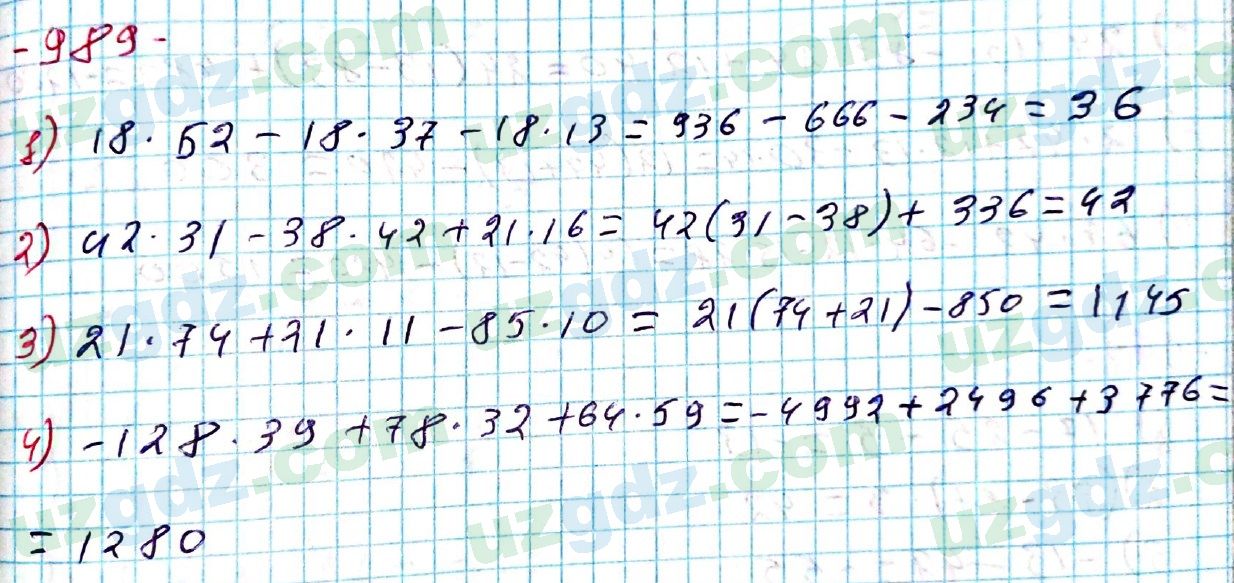 -989-
1) 18·52-18·37-18·13=936-666-234=36
2) 42·31-38·42+21·16=42(31-38)+336=42
3) 21·74+21·11-85·10=21(74+21)-850=1145
4) -128·39+78·32+64·59=-4992+2496+3776=
=1280
uzgdz.com